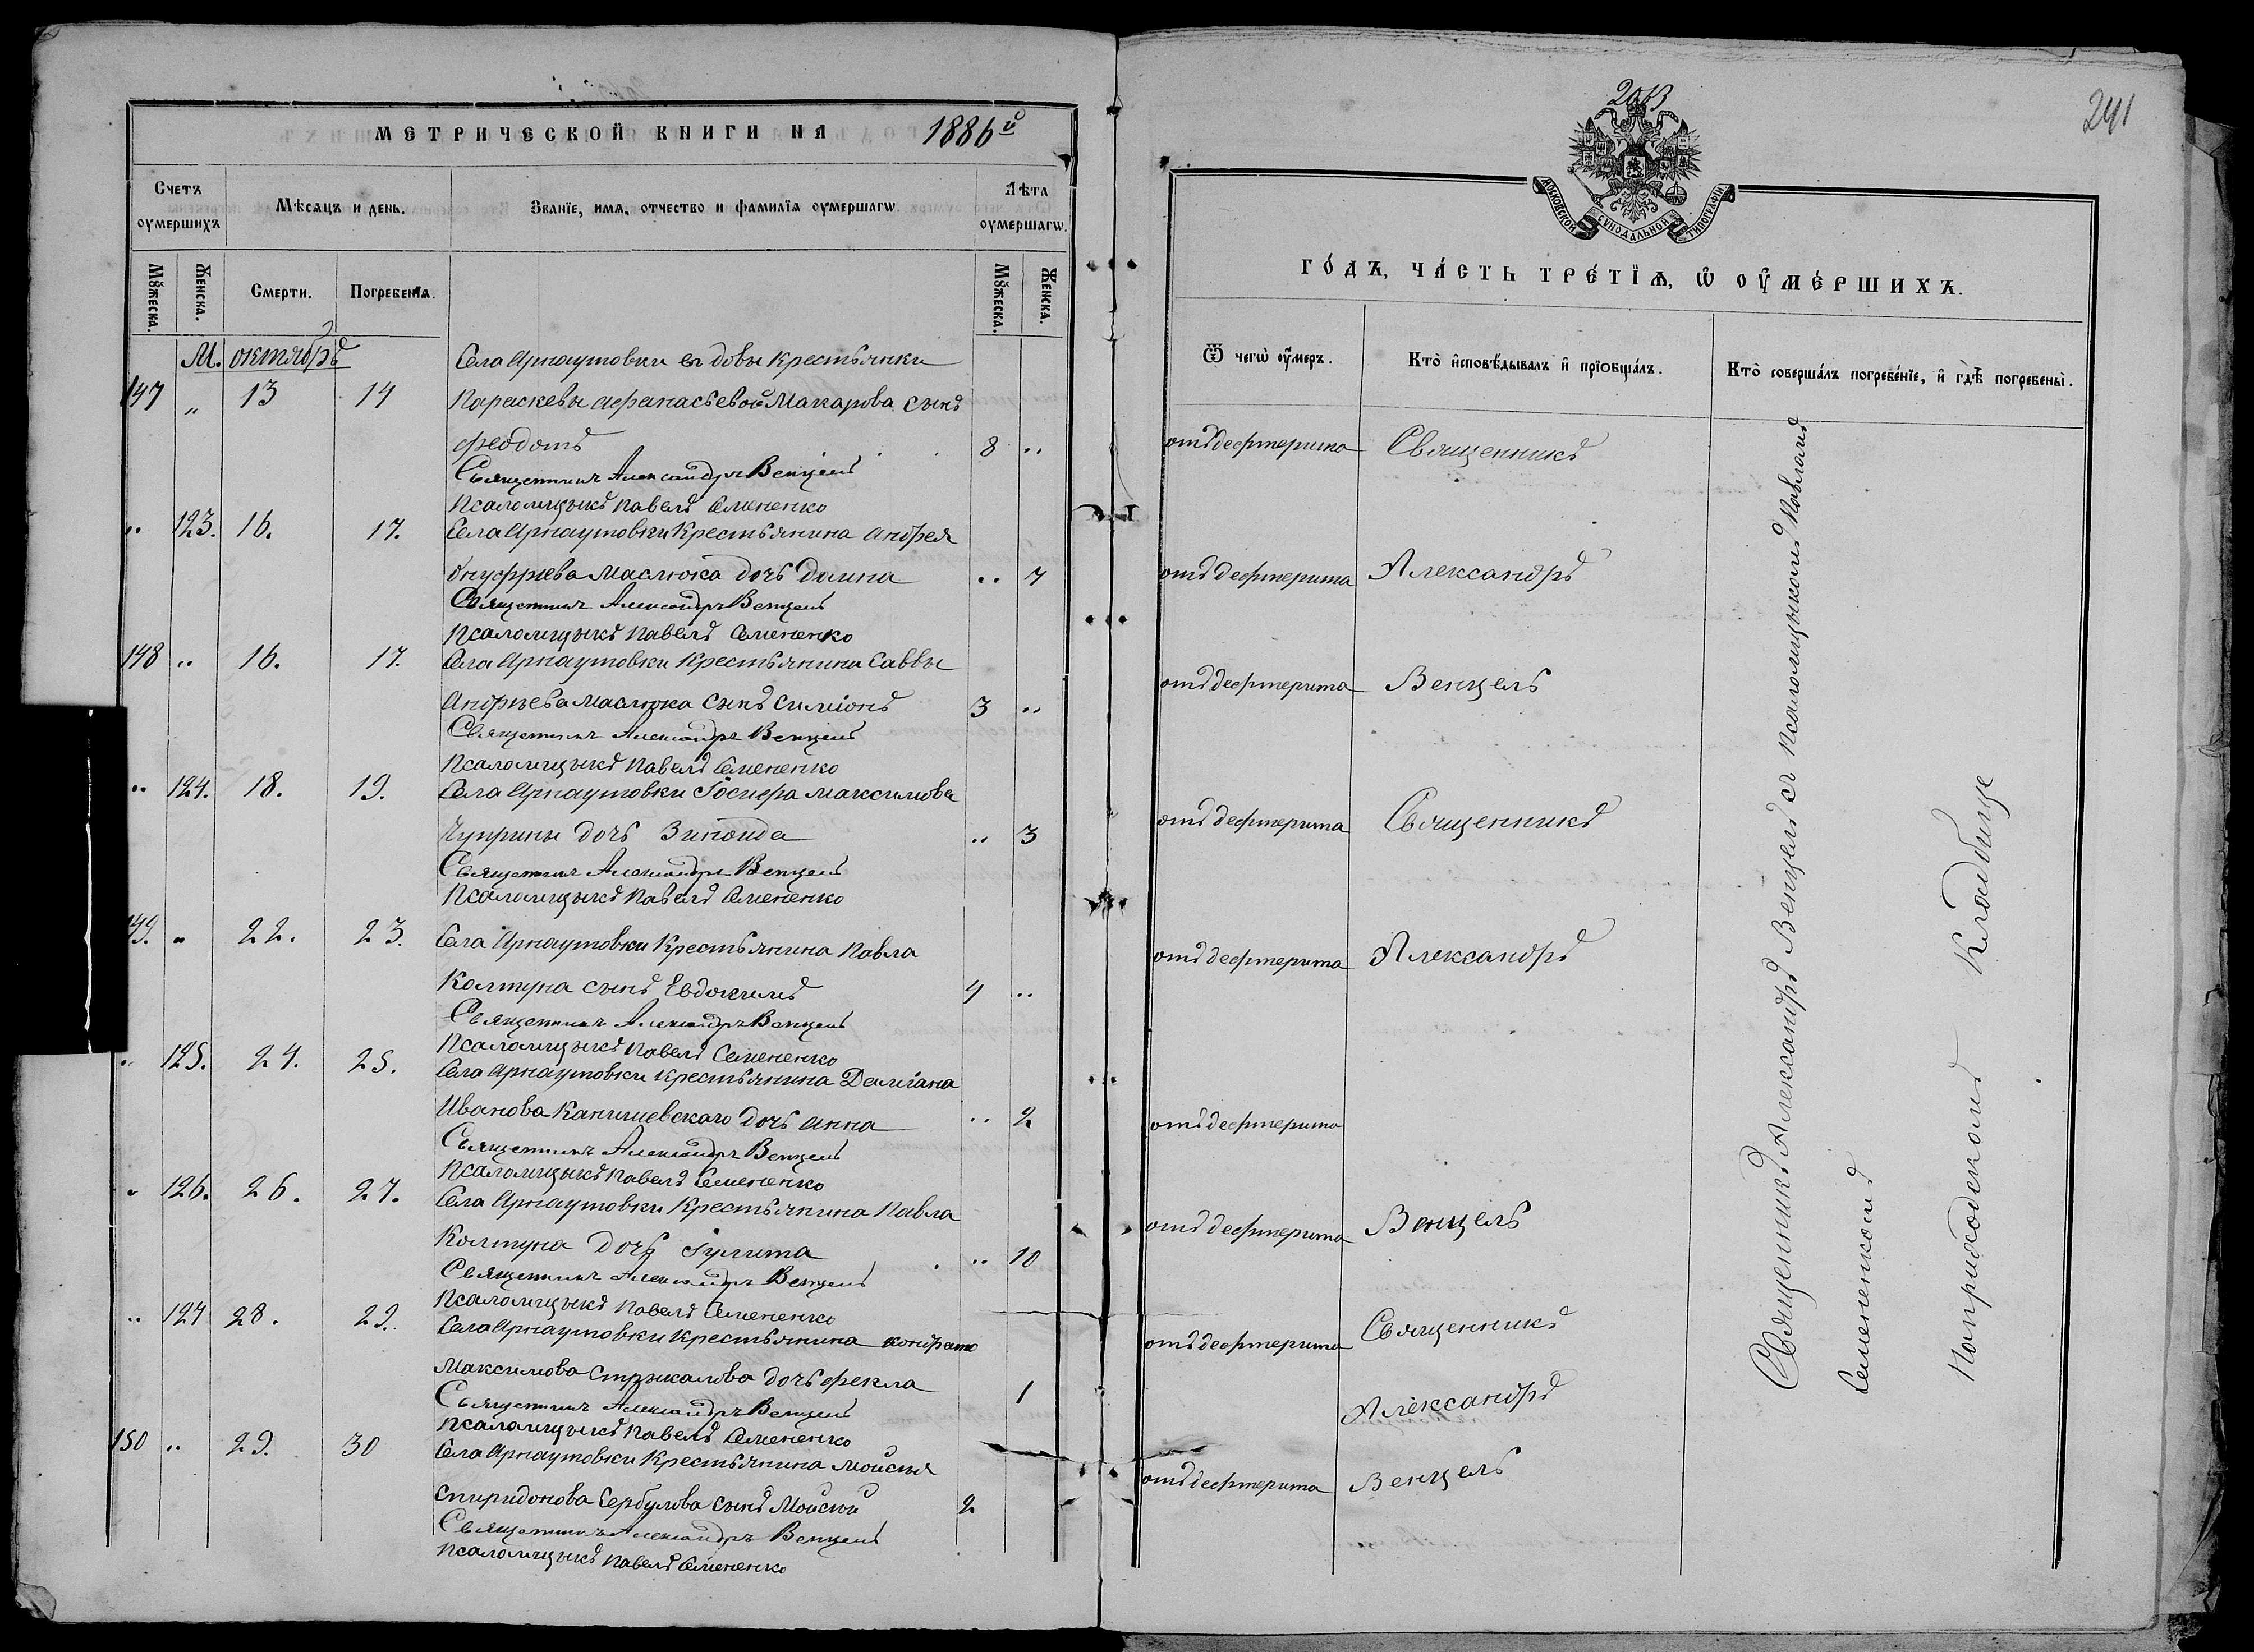 МЕТРИЧЕСКОЙ КНИГИ НА 1886й
Счетъ оумершихъ
Мѣсяцъ и день.
Званїе, имя, отчество и фамилїя оумершагѡ.
Лѣта оумершагѡ.
Мꙋжеска.
Женска.
Смерти.
Погребенїя.
Мꙋжеска.
Женска.
М. октябрь
Села Арнаутовки вдовы крестьянки
147 „ 13 14 Параскевы Афанасьевой Макарова сынъ
Феодотъ 8 ..
Священникъ Александръ Венцель
Псаломщыкъ Павелъ Семененко
.. 123. 16. 17. Села Арнаутовки крестьянина Андрея
Онуфріева Маслюка дочь Домна .. 7
Священникъ Александръ Венцель
Псаломщыкъ Павелъ Семененко
148 .. 16. 17. Села Арнаутовки крестьянина Саввы
Андреева Маслюка сынъ Симіонъ 3 ..
Священникъ Александръ Венцель
Псаломщыкъ Павелъ Семененко
.. 124. 18. 19. Села Арнаутовки Іосифа Максимова
Чуприны дочь Зинаида .. 3
Священникъ Александръ Венцель
Псаломщыкъ Павелъ Семененко
149. „ 22. 23. Села Арнаутовки крестьянина Павла
Колтуна сынъ Евдокимъ 4 ..
Священникъ Александръ Венцель
Псаломщыкъ Павелъ Семененко
.. 125. 24. 25. Села Арнаутовки крестьянина Даміана
Иванова дочь Анна .. 2
Священникъ Александръ Венцель
Псаломщыкъ Павелъ Семененко
„ 126. 26. 27. Села Арнаутовки крестьянина Павла
Колтуна дочь Іулита .. 10
Священникъ Александръ Венцель
Псаломщыкъ Павелъ Семененко
.. 127 28. 29. Села Арнаутовки крестьянина Кондрата
Максимова дочь Фекла 1
Священникъ Александръ Венцель
Псаломщыкъ Павелъ Семененко
150 .. 29. 30 Села Арнаутовки крестьянина Моисея
Спиридонова Сербулова сынъ Моисей 2
Священникъ Александръ Венцель
Псаломщыкъ Павелъ Семененко
241
МОСКОВСКОЙ СУНОДАЛЬНОЙ ТИПОГРАФІИ
ГО́ДЪ, ЧА́СТЬ ТРЕ́ТЇЯ, Ѡ҆ ОУ҆МЕ́РШИХЪ.
Ѿ чегѡ̀ оу҆́меръ.
Кто̀ и҆сповѣ́дывалъ и҆ прїѡбща́лъ.
Кто̀ соверша́лъ погребе́нїе, и҆ гдѣ̀ погребены̀.
отъ дефтерита Священникъ
отъ дефтерита Александръ
отъ дефтерита Венцель
отъ дефтерита Священникъ
отъ дефтерита Александръ
отъ дефтерита
отъ дефтерита Венцель
отъ дефтерита Священникъ
Александръ
отъ дефтерита Венцель
Священникъ Александръ Венцель съ псаломщыкомъ Павломъ
Семененкомъ
На приходскомъ кладбище